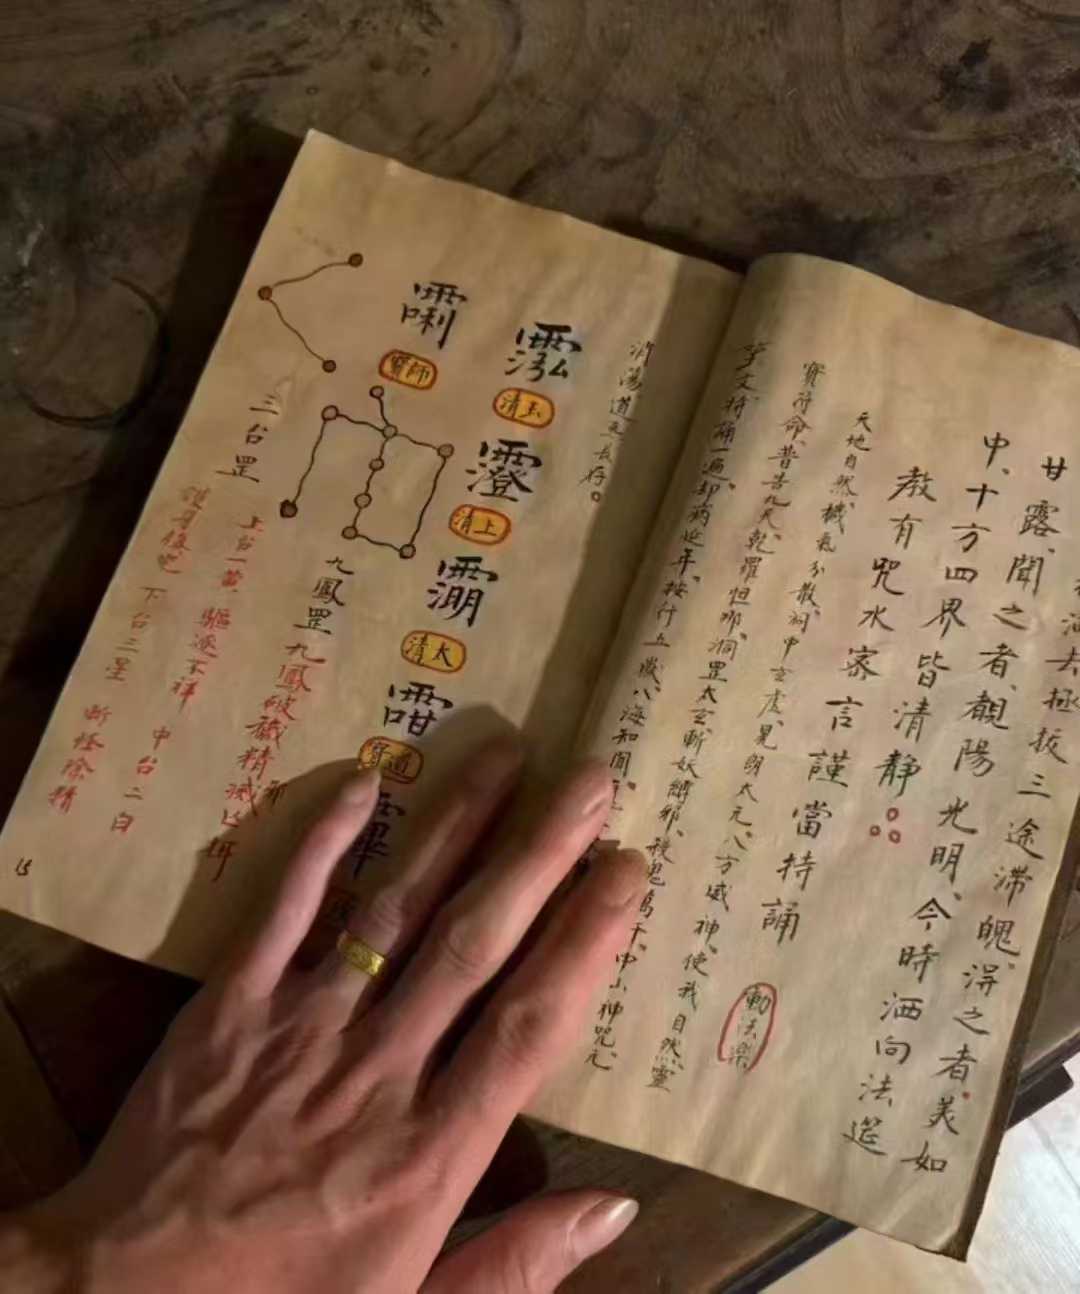 滿去拯拔三途滯魄、淂之者美如
甘露、聞之者、觀陽光明、今時洒向法筵
中、十方四界皆清靜
教有咒水家言謹當持誦
動法樂
天地自然、穢氣分散、洞中玄虛、晃朗太元、八方威神、使我自然靈
寶符命、普告九天、乾羅怛那、洞罡太玄、斬妖縛邪、殺鬼萬千、中山神咒、元
文、持誦一遍、却病延年、按行五嶽、八海知聞
消蕩道炁長存。
玉清
上清
太清
道寶
師寶
九鳳罡
九鳳破穢精滅
邪
三台罡
上台一黃、驅逐不祥
中台二白
護身鎮宅
下台三星
斷怪除精
15